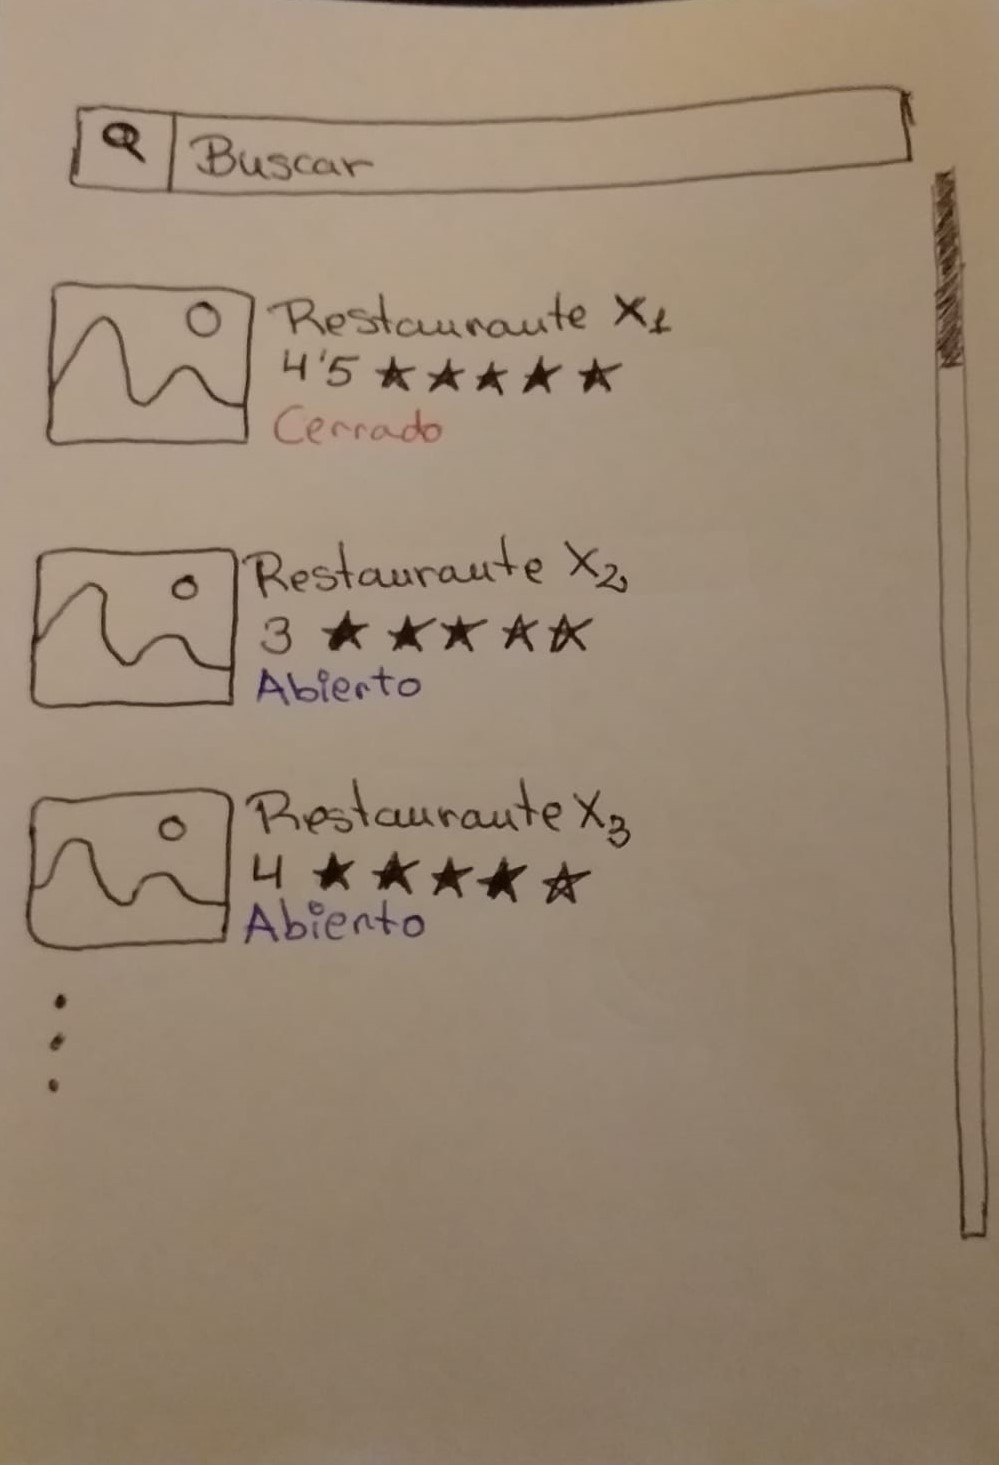 Buscar
Restaurante X₁
4'5 ★★★★★
Cerrado
Restaurante X₂
3 ★★★☆☆
Abierto
Restaurante X₃
4 ★★★★☆
Abierto